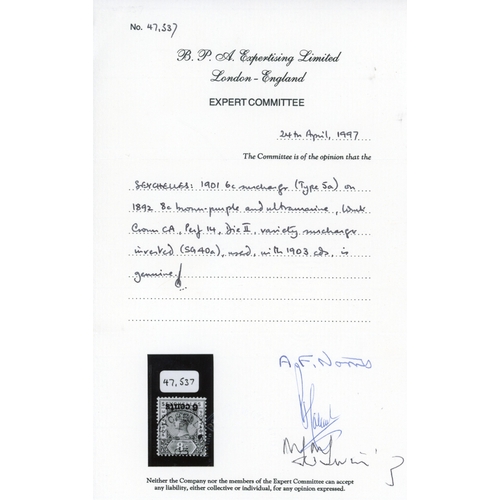 No. 47,537
B. P. A. Expertising Limited
London - England
EXPERT COMMITTEE
24th April, 1997
The Committee is of the opinion that the
SEYCHELLES: 1901 6c surcharge (Type 5a) on
1892 8c brown-purple and ultramarine, Wmk
Crown CA, Perf 14, Die II, variety surcharge
inverted (SG40a), used, with 1903 cds, is
genuine.
47,537
6 cents
A.F. Norris
Neither the Company nor the members of the Expert Committee can accept
any liability, either collective or individual, for any opinion expressed.